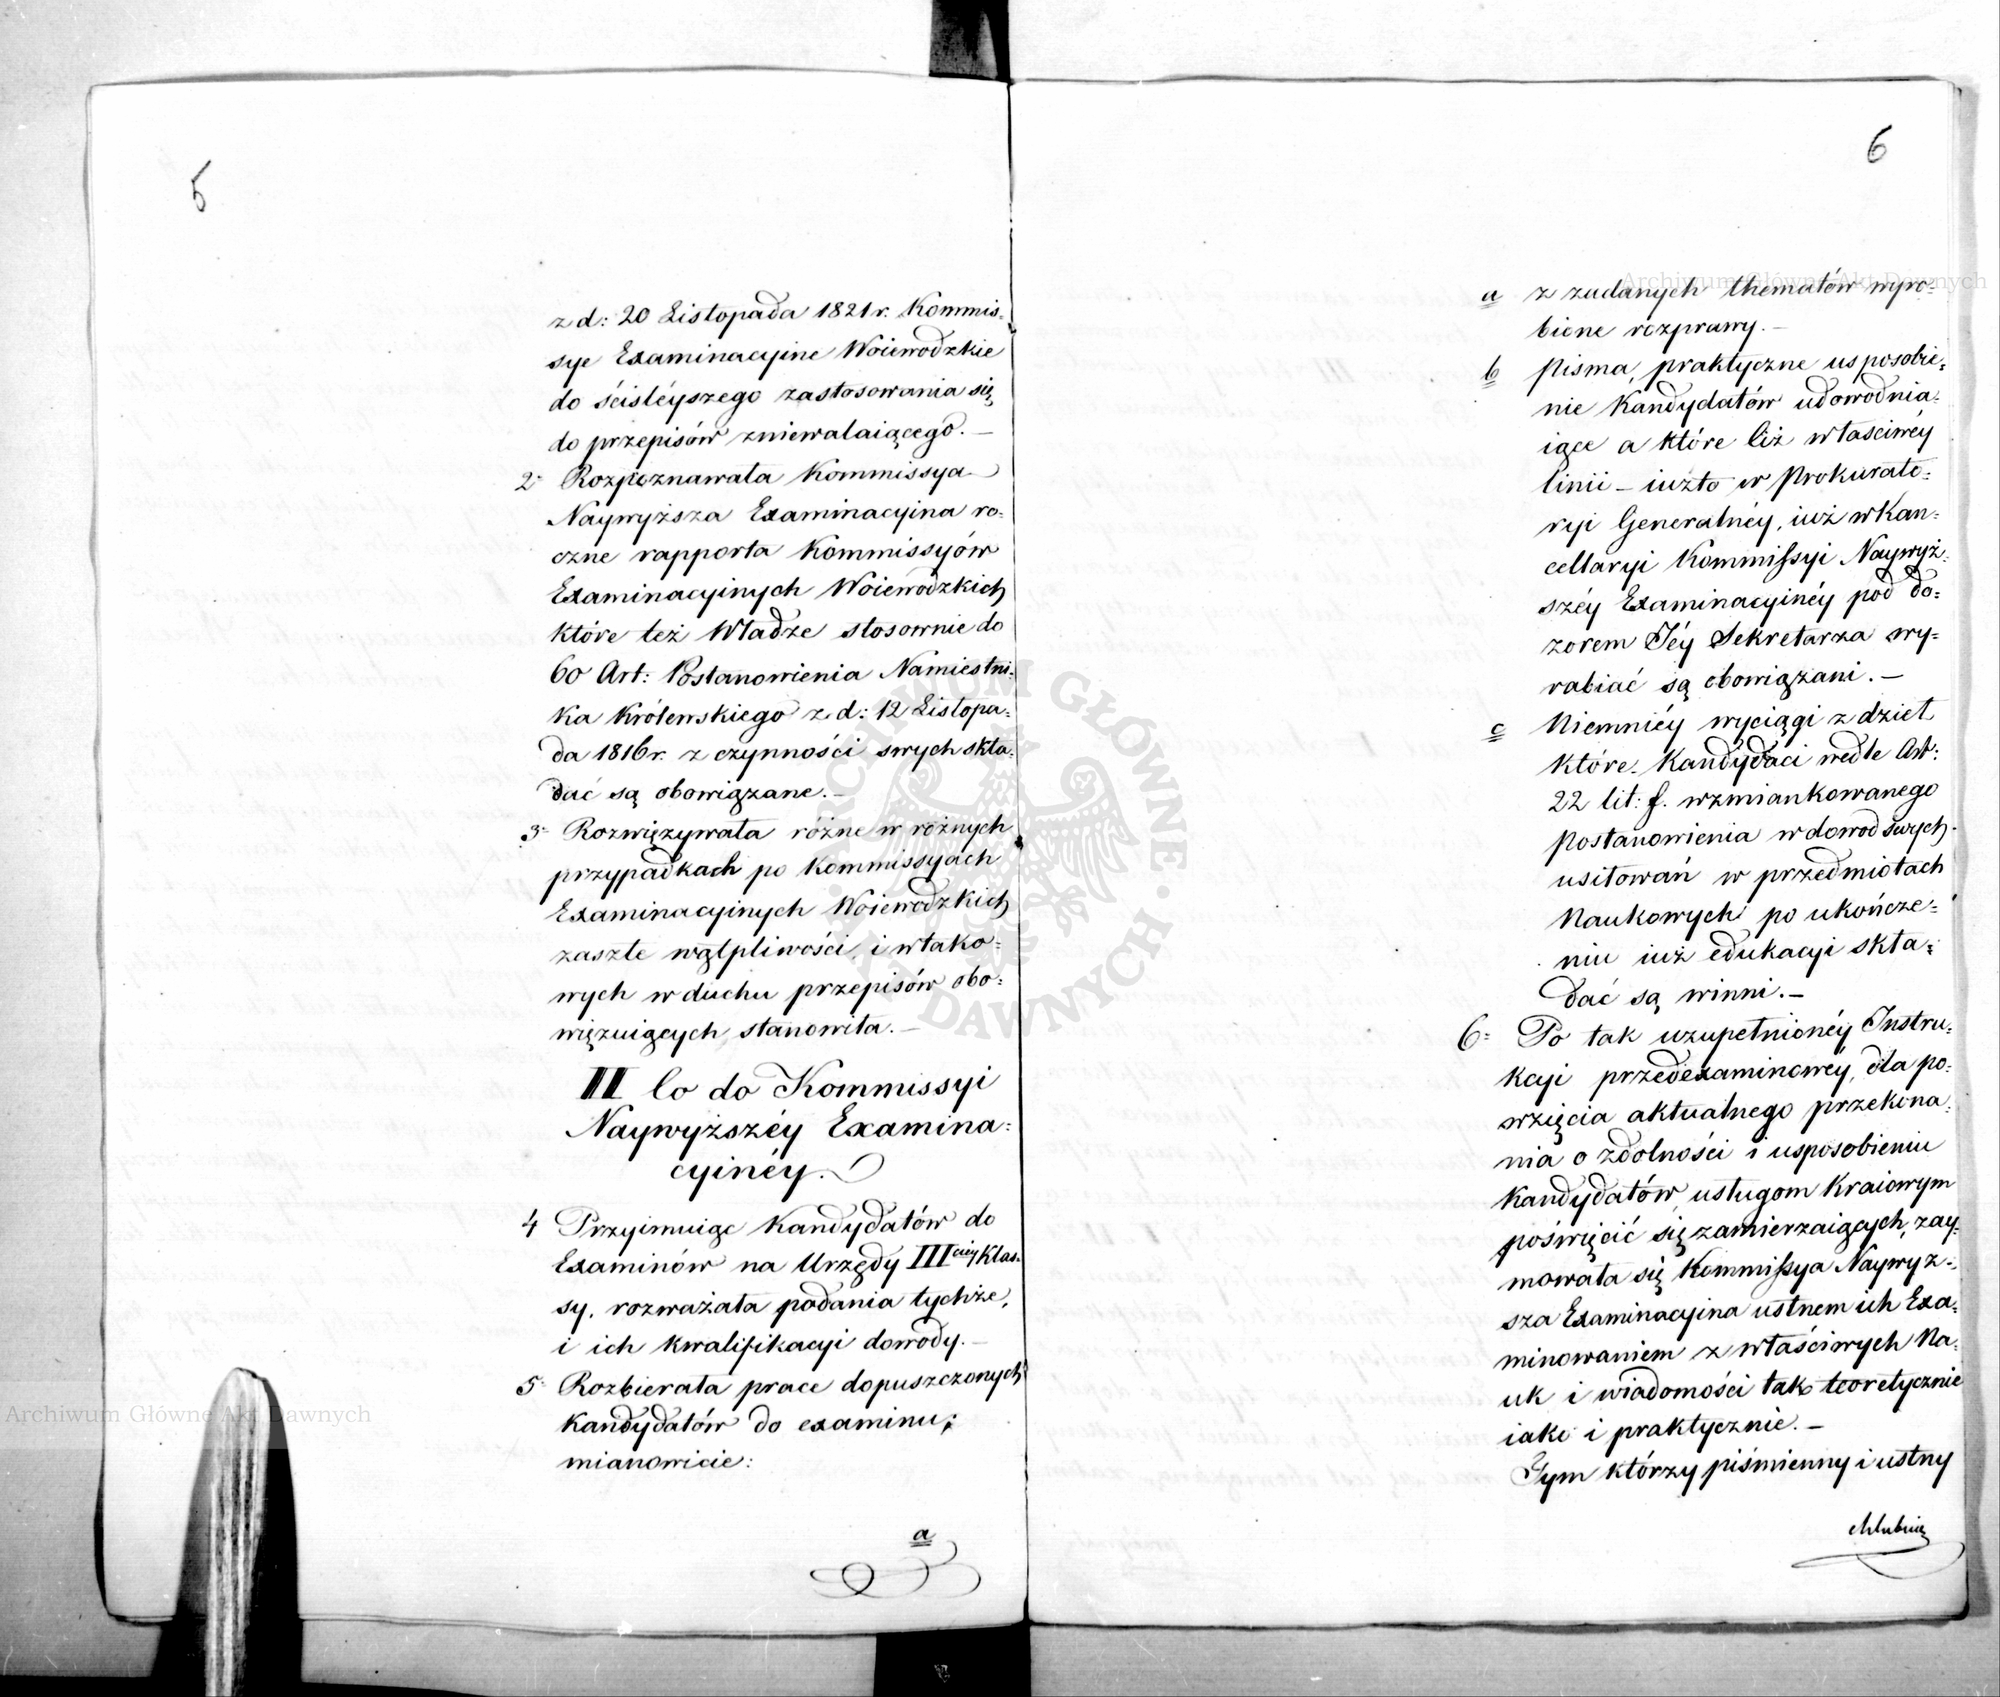 5
z d: 20 Listopada 1821 r. Kommis=
sye Examinacyine Woiewodzkie
do ściśléyszego zastosowania się
do przepisów zniewalaiącego. —
2= Rozpoznawała Kommissya
Naywyższa Examinacyina ro=
czne rapporta Kommissyów
Examinacyinych Woiewodzkich
które też Władze stosownie do
60 Art: Postanowienia Namiestni=
ka Królewskiego z d: 12 Listopa=
da 1816 r. z czynności swych skła=
dać są obowiązane. —
3= Rozwięzywała różne w różnych
przypadkach po Kommissyach
Examinacyinych Woiewodzkich
zaszłe wątpliwości, i w tako=
wych w duchu przepisów obo=
więzuiących stanowiła. —
II Co do Kommissyi
Naywyższéy Examina=
cyinéy.
4 Przyimuiąc Kandydatów do
Examinów na Urzędy III ciéy Klas=
sy, rozważała podania tychże,
i ich kwalifikacyi dowody. —
5= Rozbierała prace dopuszczonych
Kandydatów do examinu;
mianowicie:
a
6
a z zadanych thematów wyro=
bione rozprawy. —
b Pisma, praktyczne usposobie=
nie Kandydatów udowodnia=
iące a które liż właściwéy
linii — iużto w Prokurato=
ryi Generalnéy, iuż w Kan=
cellaryi Kommissyi Naywyż=
széy Examinacyinéy pod do=
zorem Jéy Sekretarza wy=
rabiać są obowiązani. —
c Niemniéy wyciągi z dzieł
które Kandydaci wedle Art:
22 lit: f. wzmiankowanego
Postanowienia w dowod swych
usiłowań w przedmiotach
Naukowych po ukończe=
niu iuż edukacyi skła=
dać są winni. —
6= Po tak uzupełnionéy Instru=
kcyi przedexaminowéy, dla po=
wzięcia aktualnego przekona=
nia o zdolności i usposobieniu
Kandydatów usługom Kraiowym
poświęcić się zamierzaiących, zay=
mowała się Kommissya Naywyż=
sza Examinacyina ustnem ich Exa=
minowaniem z właściwych Na=
uk i wiadomości tak teoretycznie
iako i praktycznie. —
Tym którzy piśmienny i ustny
Archiwum Główne Akt Dawnych
Archiwum Główne Akt Dawnych
ARCHIWUM GŁÓWNE AKT DAWNYCH